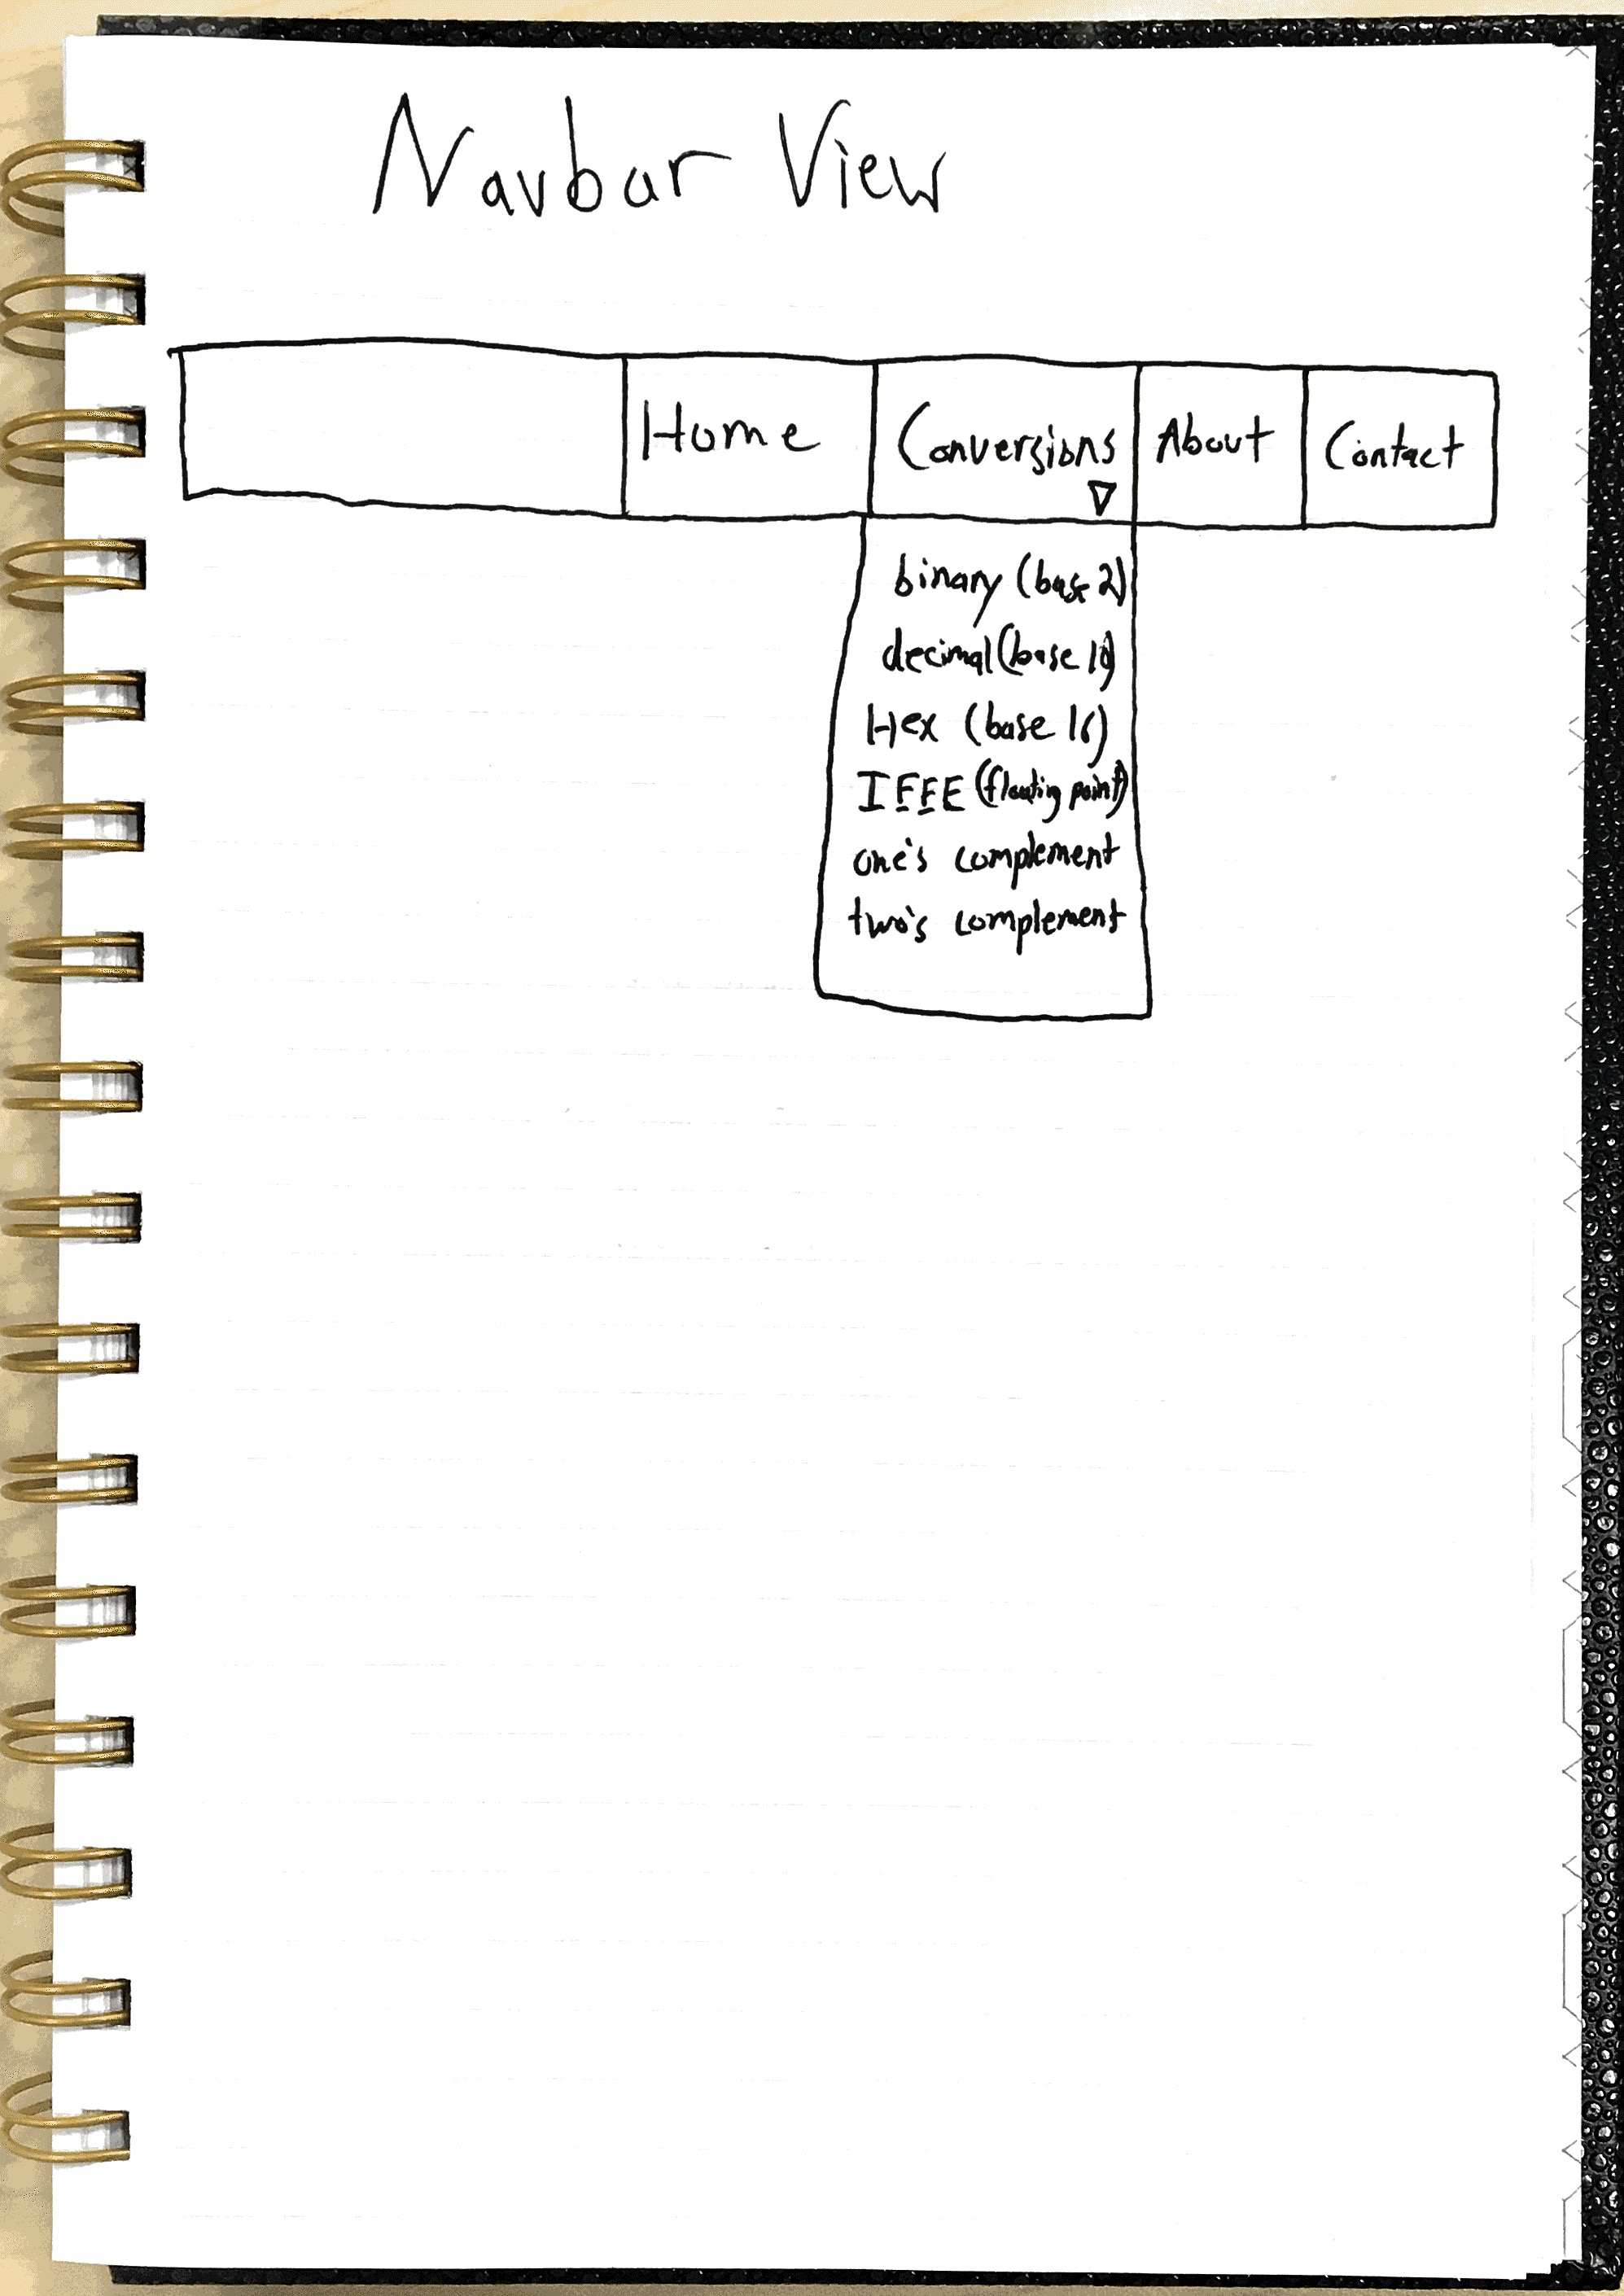 Navbar View
Home Conversions About Contact
binary (base 2)
decimal (base 10)
Hex (base 16)
IEEE (floating point)
one's complement
two's complement